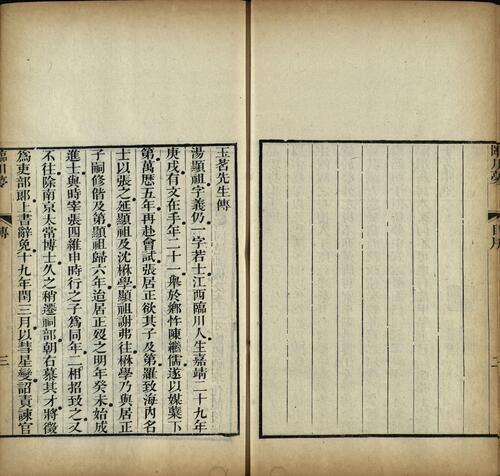 臨川夢
自序
二
玉茗先生傳
湯顯祖字義仍一字若士江西臨川人生嘉靖二十九年
庚戌有文在手年二十一舉於鄉忤陳繼儒遂以媒蘖下
第萬歷五年再赴會試張居正欲其子及第羅致海內名
士以張之延顯祖及沈楙學顯祖謝弗往楙學乃與居正
子嗣修偕及第顯祖歸六年迨居正歿之明年癸未始成
進士與時宰張四維申時行之子為同年二相招致之又
不往除南京太常博士久之稍遷祠部朝右慕其才將徵
為吏部郎上書辭免十九年閏三月以彗星變詔責諫官
臨川夢
傳
三